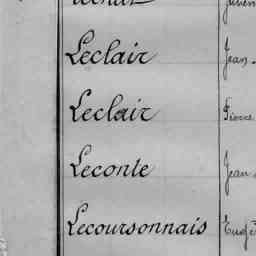 Leclair Jean
Leclair Pierre
Leconte Jean
Lecoursonnais